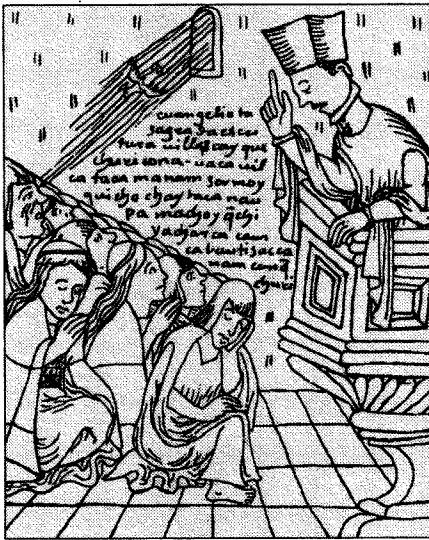 euangeliota
sagrada escri
tura uillascayque
churicona-uaca uil
ca taca manam
quicho chaytaca nau
pa machoyqchi
yacharca cam
ca bautisasca
nam